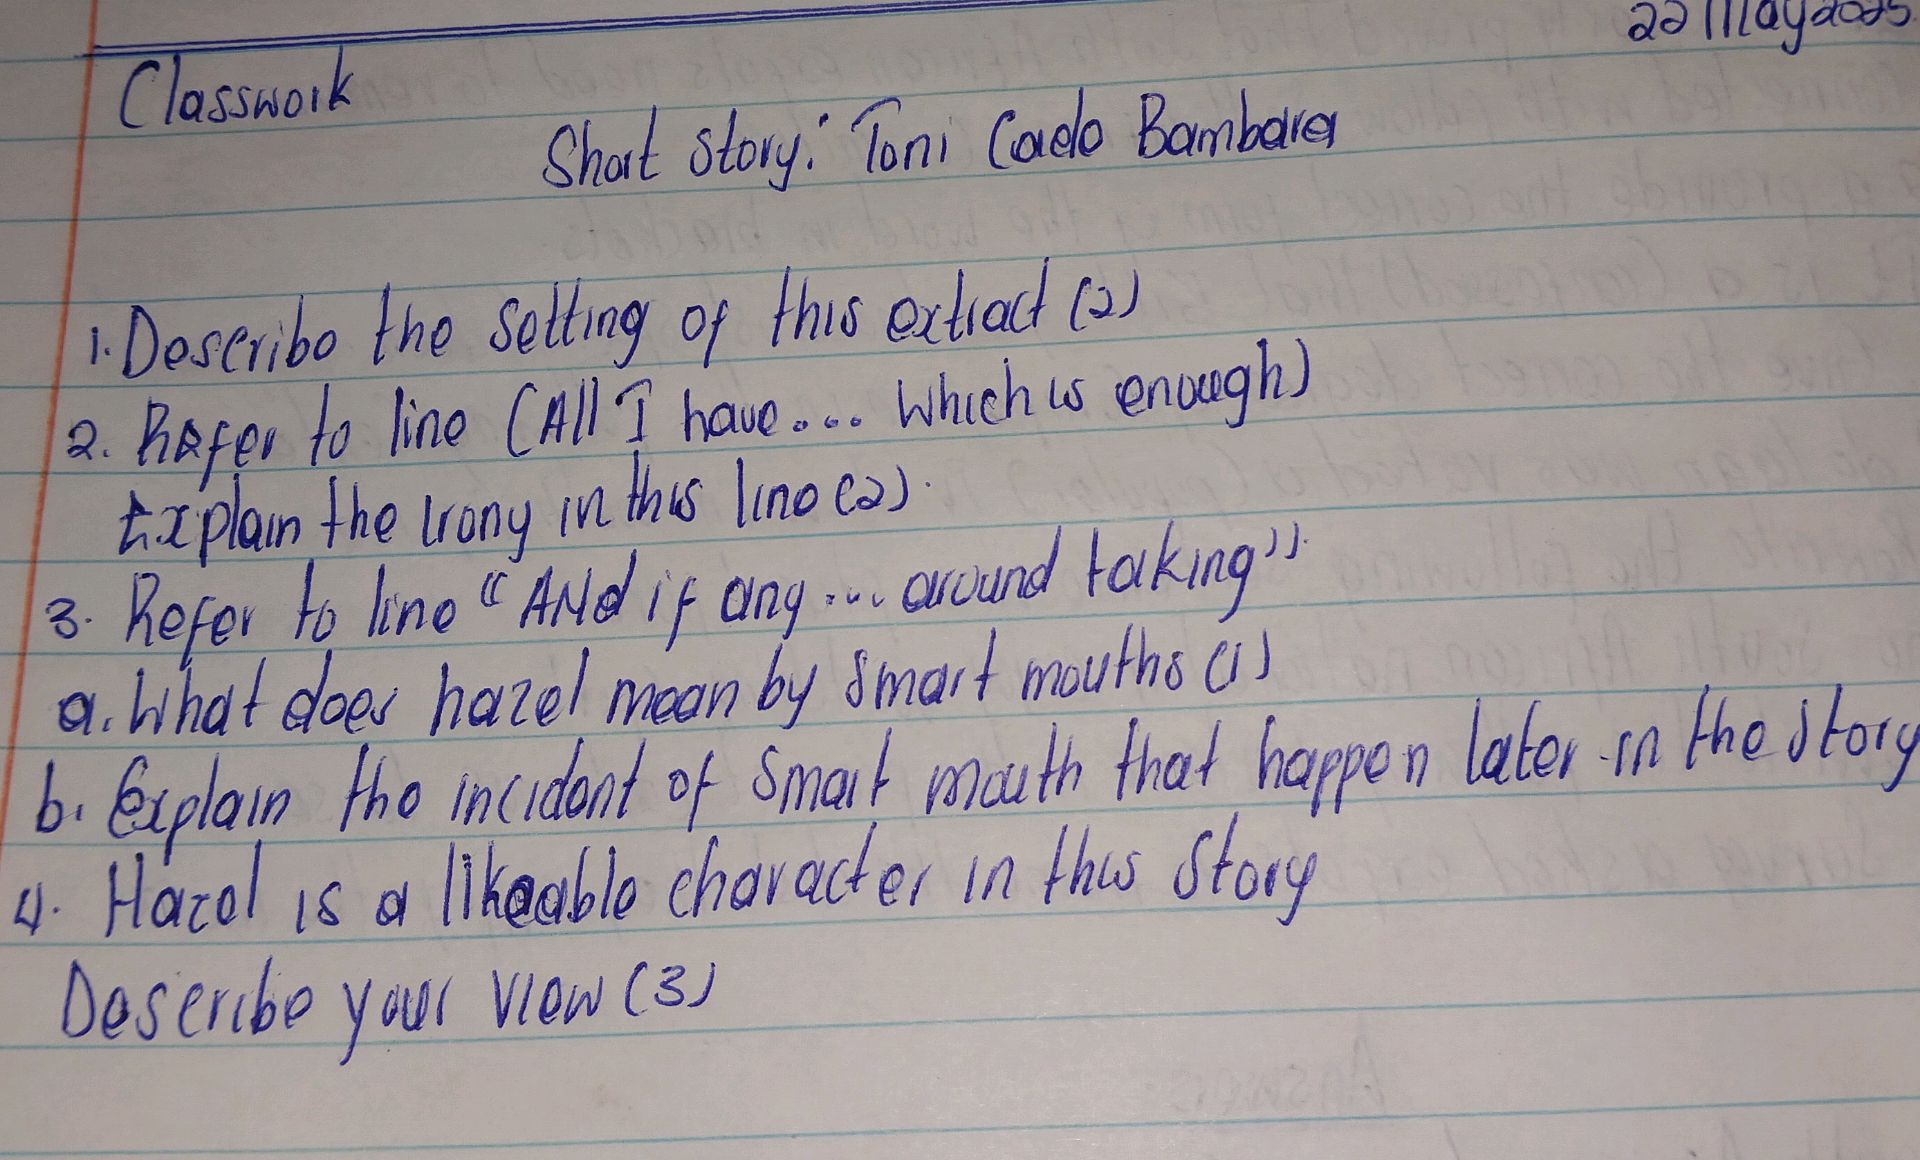 22 May 2025
Classwork
Short Story: Toni Cade Bambara
1. Describe the setting of this extract (2)
2. Refer to line (All I have.... Which is enough)
Explain the irony in this line (2).
3. Refer to line "ANd if any .... around taking".
a. What does hazel mean by smart mouths (1)
b. Explain the incident of smart mouth that happen later in the story
4. Hazel is a likeable character in this story
Describe your view (3)